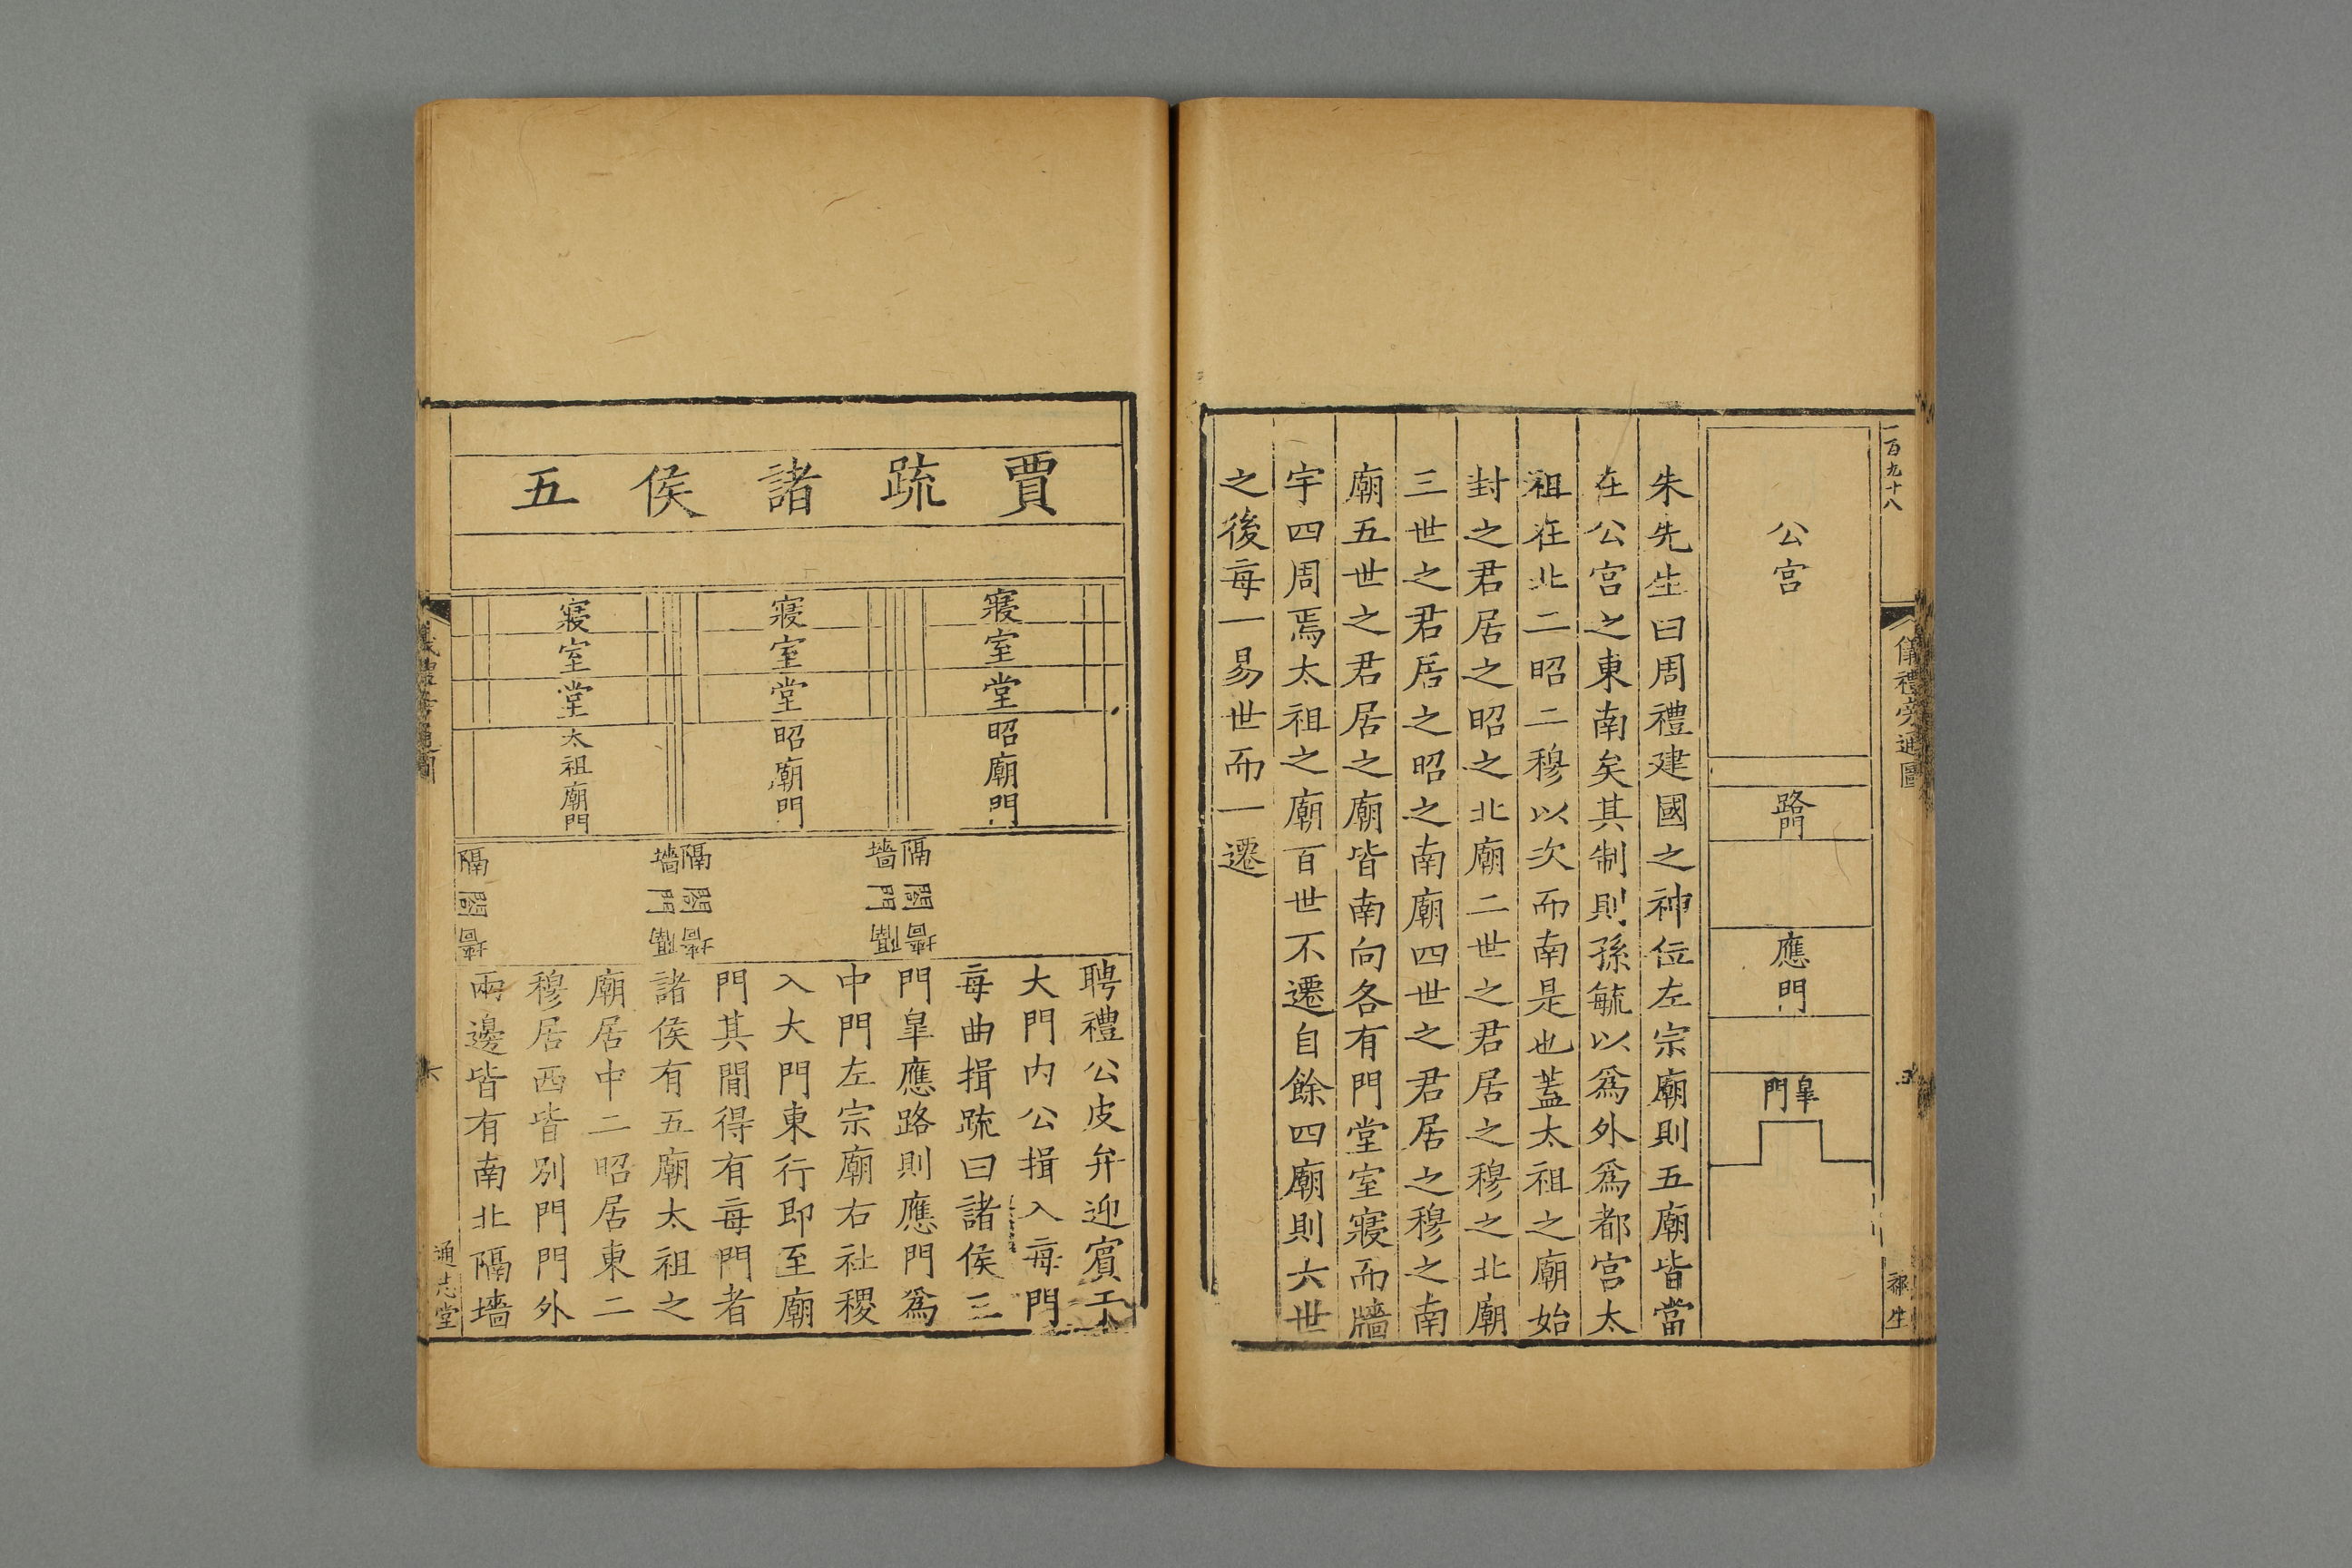 一百九十八
儀禮旁通圖
五
公宮
路門
應門
皐門
朱先生曰周禮建國之神位左宗廟則五廟皆當
在公宮之東南矣其制則孫毓以爲外爲都宮太
祖在北二昭二穆以次而南是也蓋太祖之廟始
封之君居之昭之北廟二世之君居之穆之北廟
三世之君居之昭之南廟四世之君居之穆之南
廟五世之君居之廟皆南向各有門堂室寢而牆
宇四周焉太祖之廟百世不遷自餘四廟則六世
之後每一易世而一遷
賈疏諸侯五
寢室堂昭廟門
寢室堂昭廟門
寢室堂太祖廟門
隔墻
閤門
隔墻
隔墻
閤門
隔墻
隔
閤
墻
聘禮公皮弁迎賓于
大門内公揖入每門
每曲揖疏曰諸侯三
門皐應路則應門爲
中門左宗廟右社稷
入大門東行即至廟
門其閒得有每門者
諸侯有五廟太祖之
廟居中二昭居東二
穆居西皆別門門外
兩邊皆有南北隔墻
六
通志堂